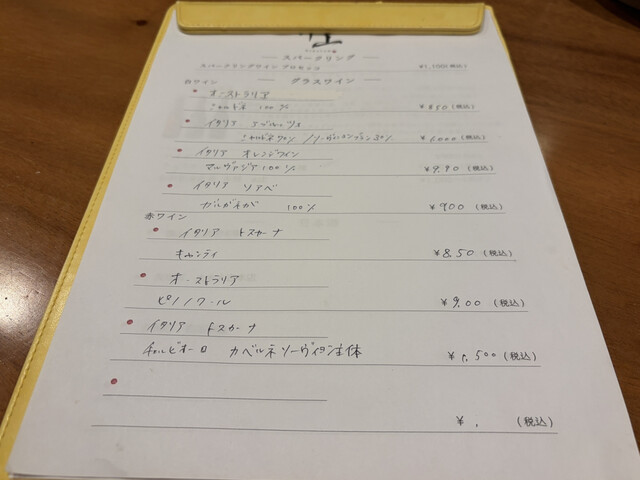 ― スパークリング ―
スパークリングワイン プロセッコ ¥1,100(税込)
― グラスワイン ―
白ワイン
オーストラリア
シャルドネ 100% ¥850(税込)
イタリア アブルッツォ
¥1,000(税込)
イタリア オレンジワイン
マルヴァジア100% ¥9.90(税込)
イタリア ソアベ
ガルガネガ 100% ¥900(税込)
赤ワイン
イタリア トスカーナ
キャンティ ¥8.50(税込)
オーストラリア
ピノノワール ¥9.00(税込)
イタリア トスカーナ
カベルネソーヴィニヨン主体 ¥1,500(税込)
¥ , (税込)